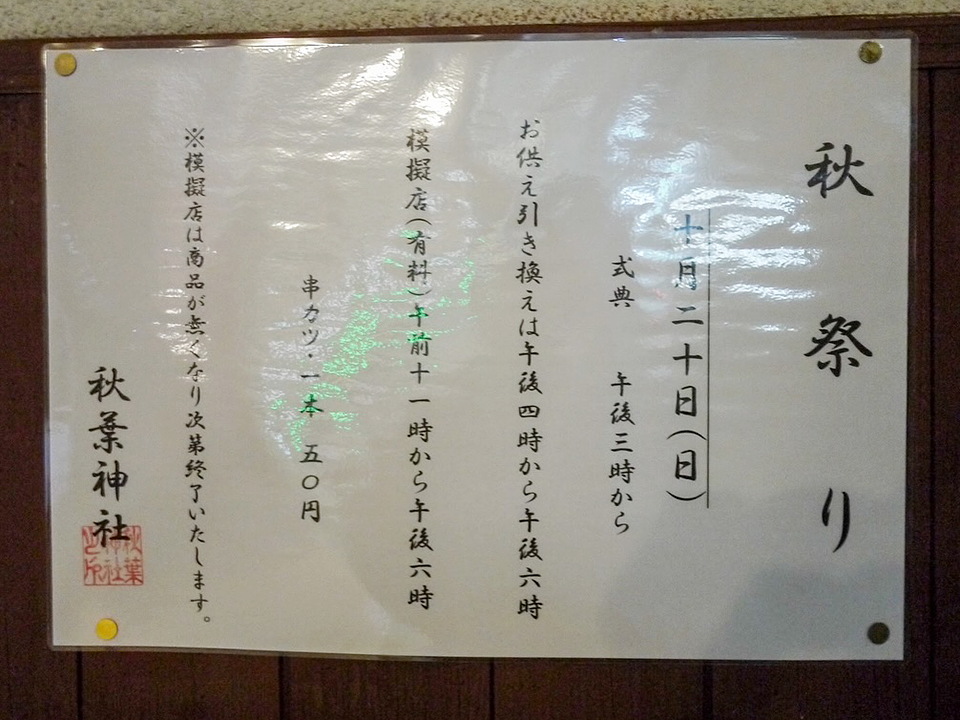 秋祭り
十月二十日（日）
式典　午後三時から
お供え引き換えは午後四時から午後六時
模擬店（有料）午前十一時から午後六時
串カツ・一本 五〇円
※模擬店は商品が無くなり次第終了いたします。
秋葉神社
秋葉神社之印